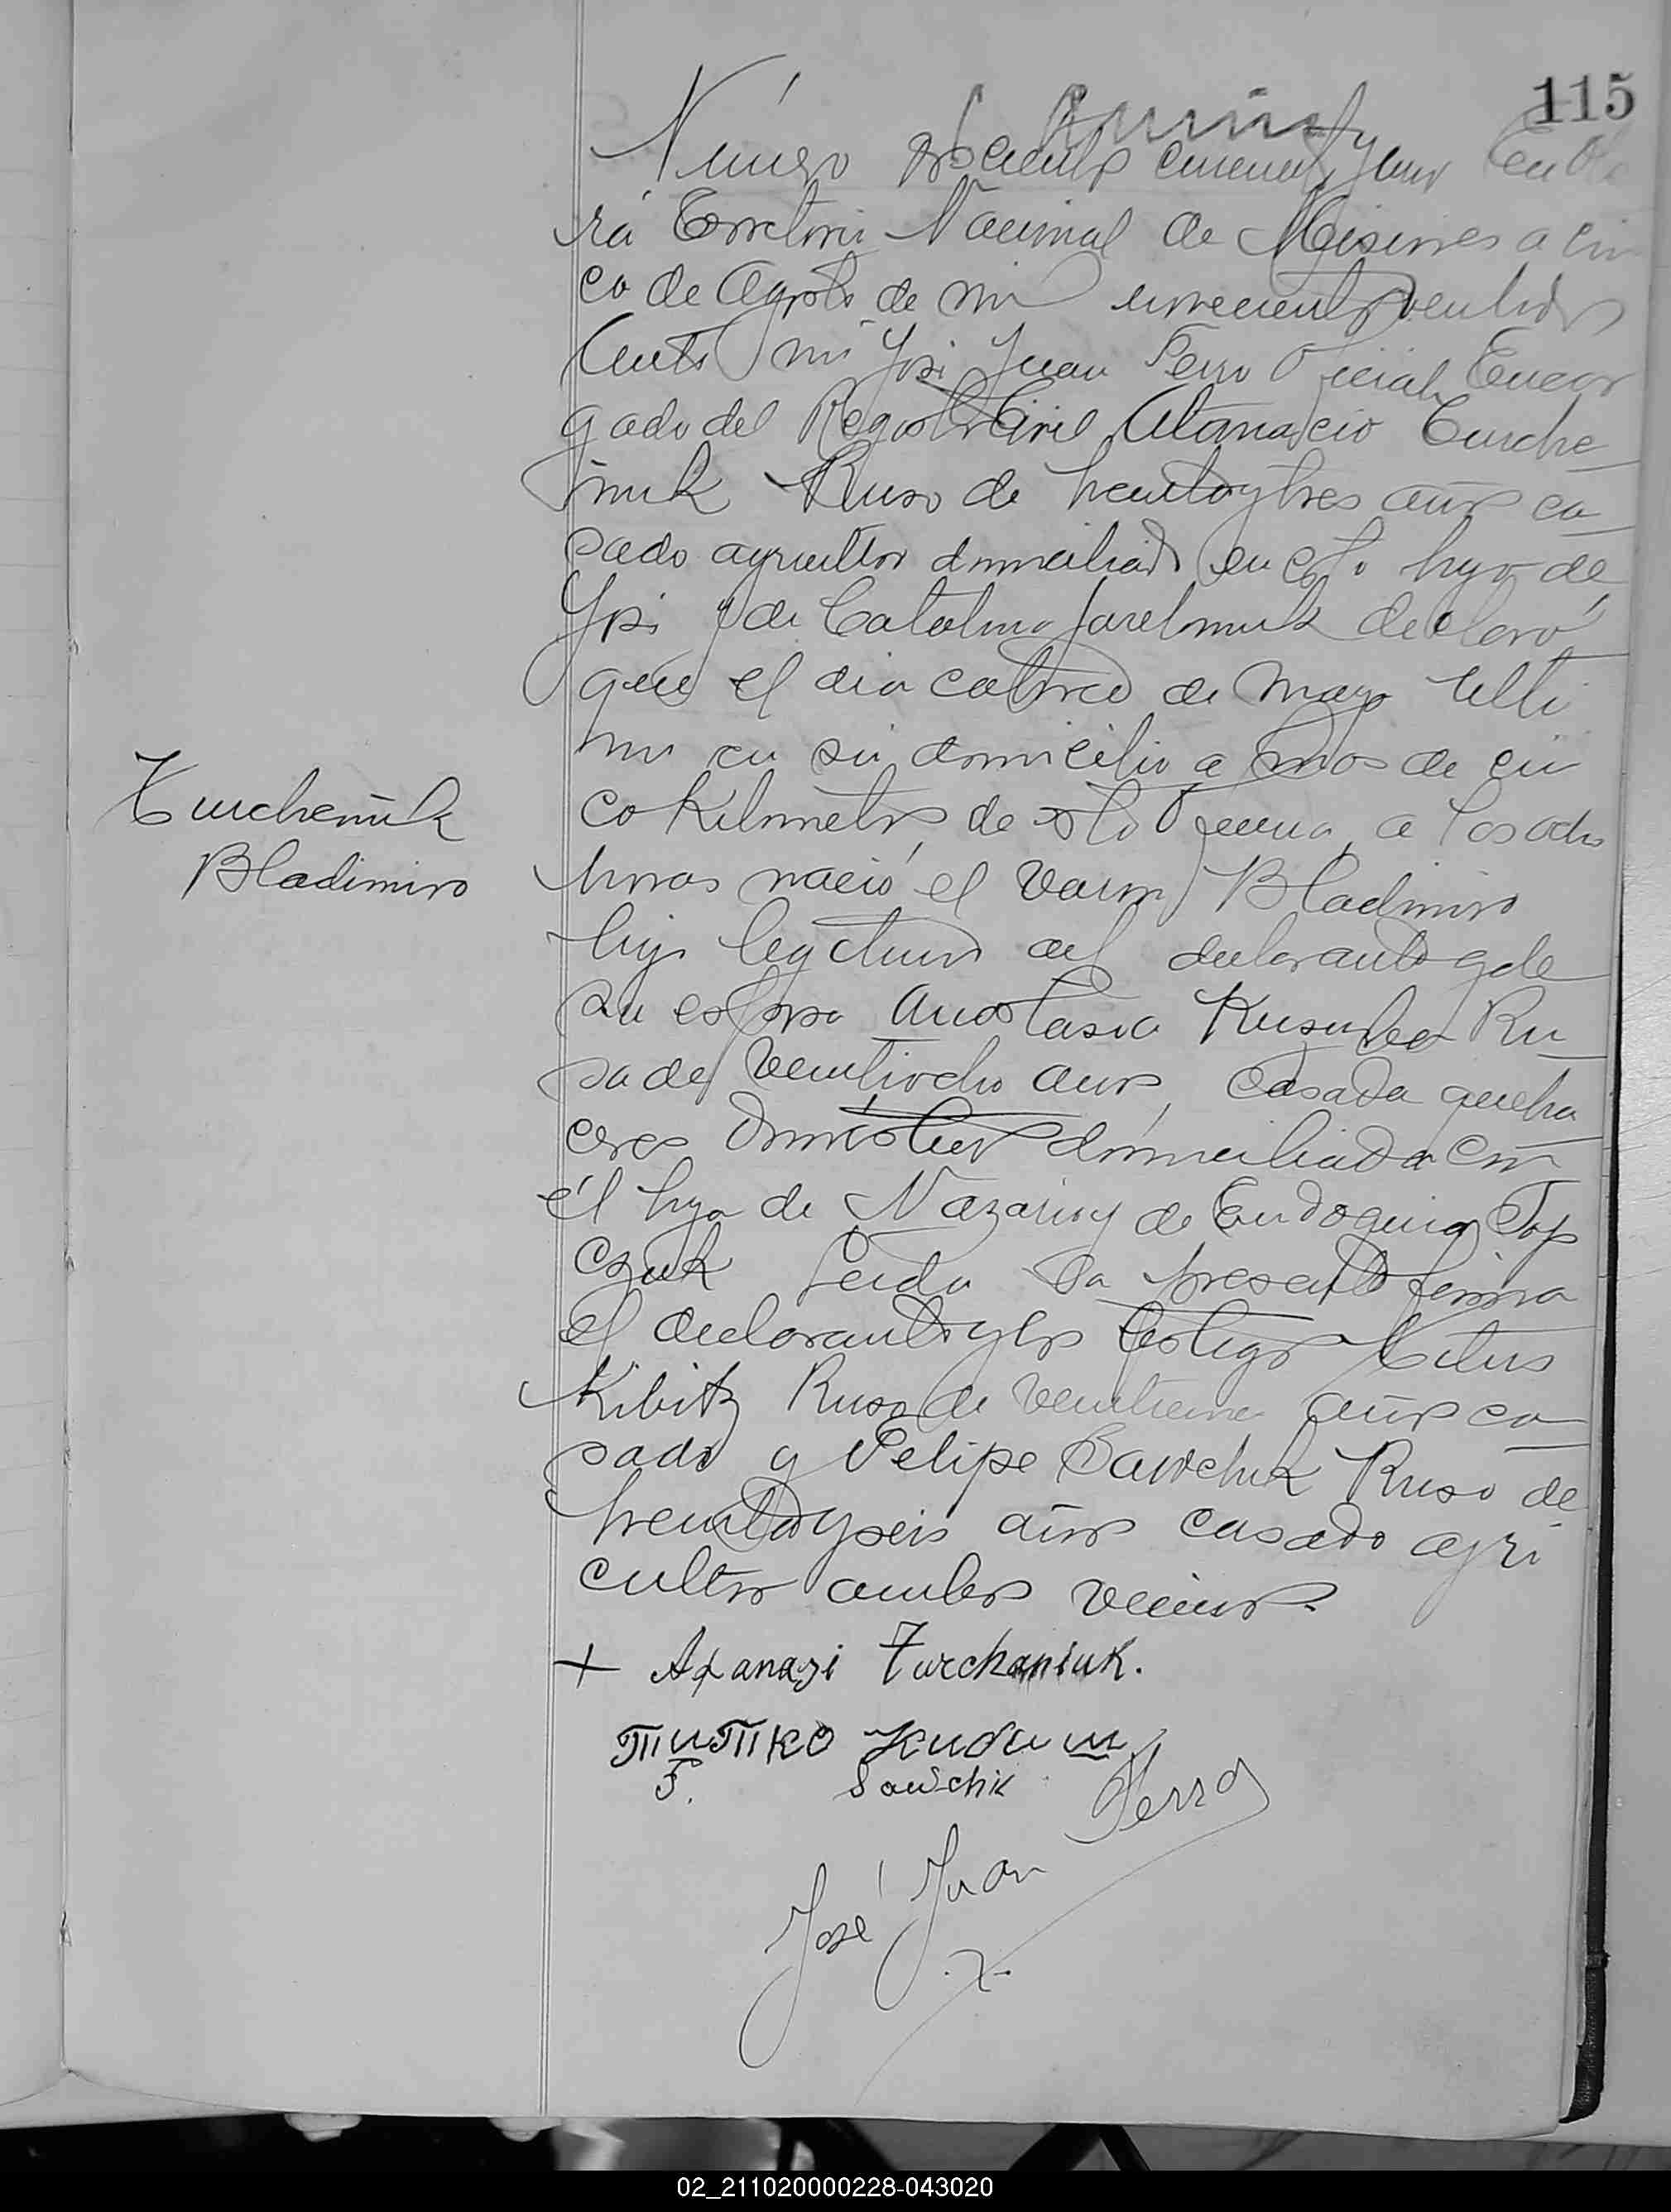 115
Número doscientos cincuenta y uno En Obe
rá Territorio Nacional de Misiones a cin
co de Agosto de mil novecientos veintidos
Ante mi José Juan Ferro Oficial Encar
gado del Registro Civil Atanacio Turche
ñiuk Ruso de treinta y tres años ca
sado agricultor domiciliado en esto hijo de
José y de Catalina declaró
que el dia catorce de Mayo ulti
mo en su domicilio a mas de cin
co Kilometros de esta Oficina, a las ocho
horas nació el varon Bladimiro
Turcheñiuk
Bladimiro
hijo legitimo del declarante y de
su esposa Anastasia Ru
sa de veintiocho años, casada queha
ceres domésticos domiciliada con
él hija de Nazario y de Eudoquia Top
czuk Leida la presente firma
el declarante y los testigos Titus
Kibitz Ruso de años ca
sado y Felipe Sawchuk Ruso de
treinta y seis años casado agri
cultor ambos vecinos.
+ Aфanazi Turchaniuk.
Титко Кибиш
F. Sawchik
José Juan Ferro
02_211020000228-043020